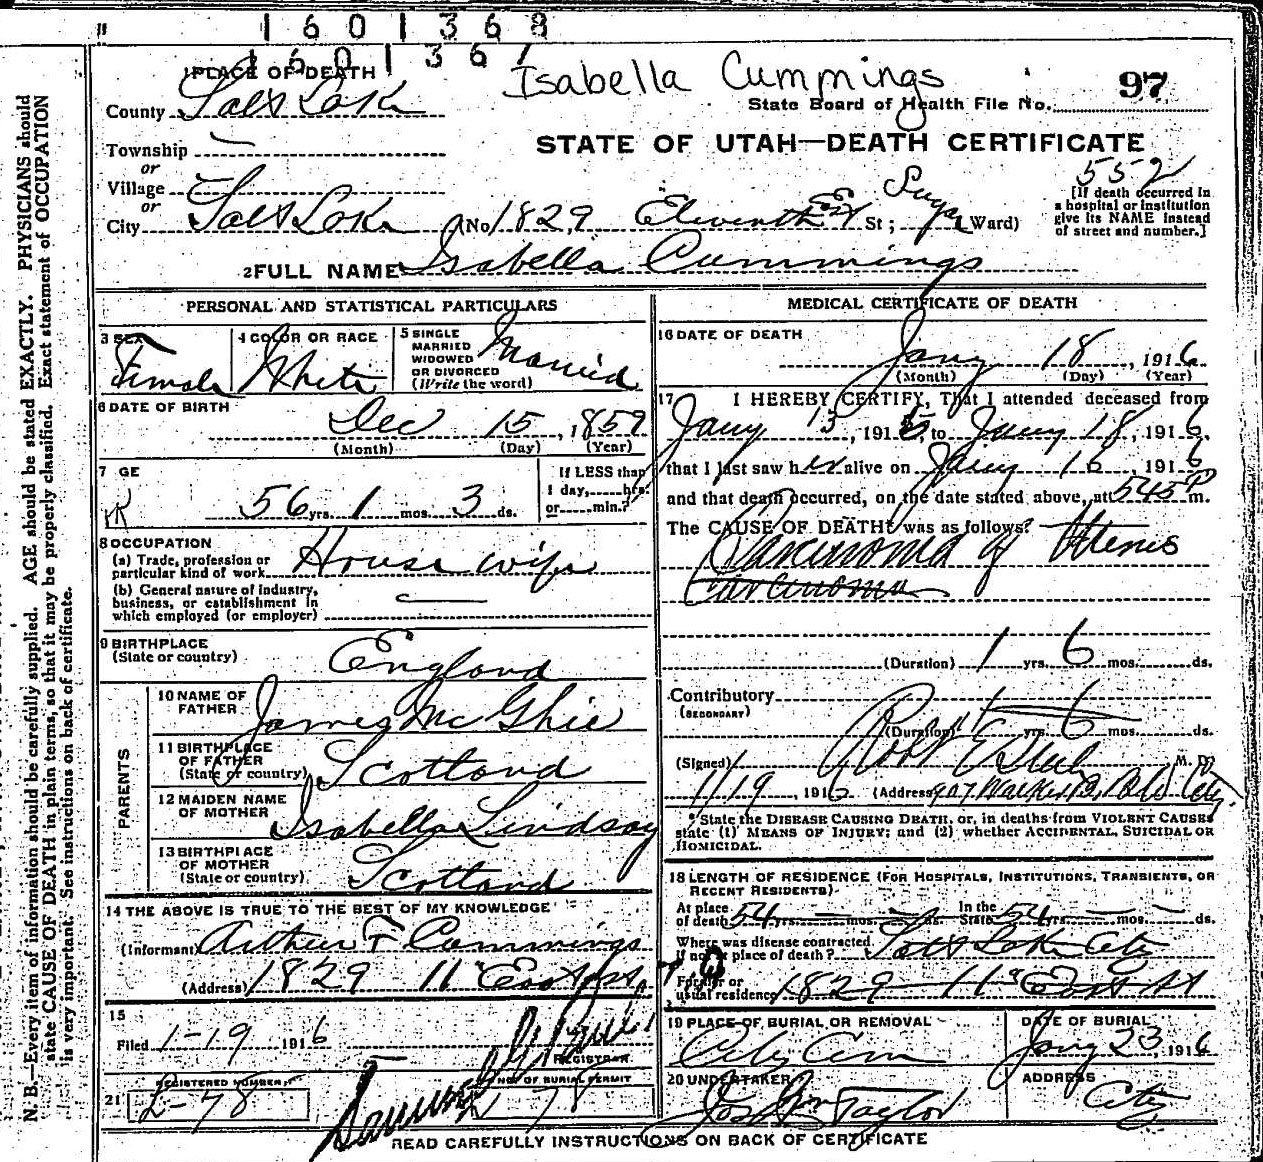 1601368
1601367
PLACE OF DEATH
Isabella Cummings
97
County Salt Lake
State Board of Health File No.
STATE OF UTAH—DEATH CERTIFICATE
Township
or
Village
or
City Salt Lake (No. 1829, Eleventh East St; Sugar Ward)
552
[If death occurred in
a hospital or institution
give its NAME instead
of street and number.]
2 FULL NAME Isabella Cummings
PERSONAL AND STATISTICAL PARTICULARS
3 SEX
Female
4 COLOR OR RACE
White
5 SINGLE
MARRIED
WIDOWED
OR DIVORCED
(Write the word)
Married
6 DATE OF BIRTH
Dec 15, 1859
(Month) (Day) (Year)
7 GE
56 yrs. 1 mos. 3 ds.
If LESS than
1 day, hrs.
or min.?
8 OCCUPATION
(a) Trade, profession or
particular kind of work House wife
(b) General nature of industry,
business, or establishment in
which employed (or employer)
9 BIRTHPLACE
(State or country)
England
PARENTS
10 NAME OF
FATHER
James McGhie
11 BIRTHPLACE
OF FATHER
(State or country)
Scotland
12 MAIDEN NAME
OF MOTHER
Isabella Lindsay
13 BIRTHPLACE
OF MOTHER
(State or country)
Scotland
14 THE ABOVE IS TRUE TO THE BEST OF MY KNOWLEDGE
(Informant) Arthur F Cummings
(Address) 1829 11" East St
15
Filed 1-19 1916
REGISTRAR
21
REGISTERED NUMBER
L-78
NO. OF BURIAL PERMIT
L 78
MEDICAL CERTIFICATE OF DEATH
16 DATE OF DEATH
Jany 18, 1916
(Month) (Day) (Year)
17 I HEREBY CERTIFY, That I attended deceased from
Jany 15, 1916, to Jany 18, 1916,
that I last saw her alive on Jany 16, 1916
and that death occurred, on the date stated above, at 545 P m.
The CAUSE OF DEATH was as follows:
Carcinoma of Uterus
Carcinoma
(Duration) 1 yrs. 6 mos. ds.
Contributory
(SECONDARY)
(Duration) 1 yrs. 6 mos. ds.
(Signed) Robt M. D.
1/19, 1916 (Address) 407 Walker B. Bld City.
* State the DISEASE CAUSING DEATH, or, in deaths from VIOLENT CAUSES
state (1) MEANS OF INJURY; and (2) whether ACCIDENTAL, SUICIDAL OR
HOMICIDAL.
18 LENGTH OF RESIDENCE (FOR HOSPITALS, INSTITUTIONS, TRANSIENTS, OR
RECENT RESIDENTS)
At place
of death 54 yrs. mos. ds. In the
State 54 yrs. mos. ds.
Where was disease contracted
If not place of death? Salt Lake City
Former or
usual residence 1829 11" East St
19 PLACE OF BURIAL OR REMOVAL
City Cem
DATE OF BURIAL
Jany 23, 1916
20 UNDERTAKER
Jos Wm Taylor
ADDRESS
City
READ CAREFULLY INSTRUCTIONS ON BACK OF CERTIFICATE
N. B.—Every item of information should be carefully supplied. AGE should be stated EXACTLY. PHYSICIANS should
state CAUSE OF DEATH in plain terms, so that it may be properly classified. Exact statement of OCCUPATION
is very important. See instructions on back of certificate.